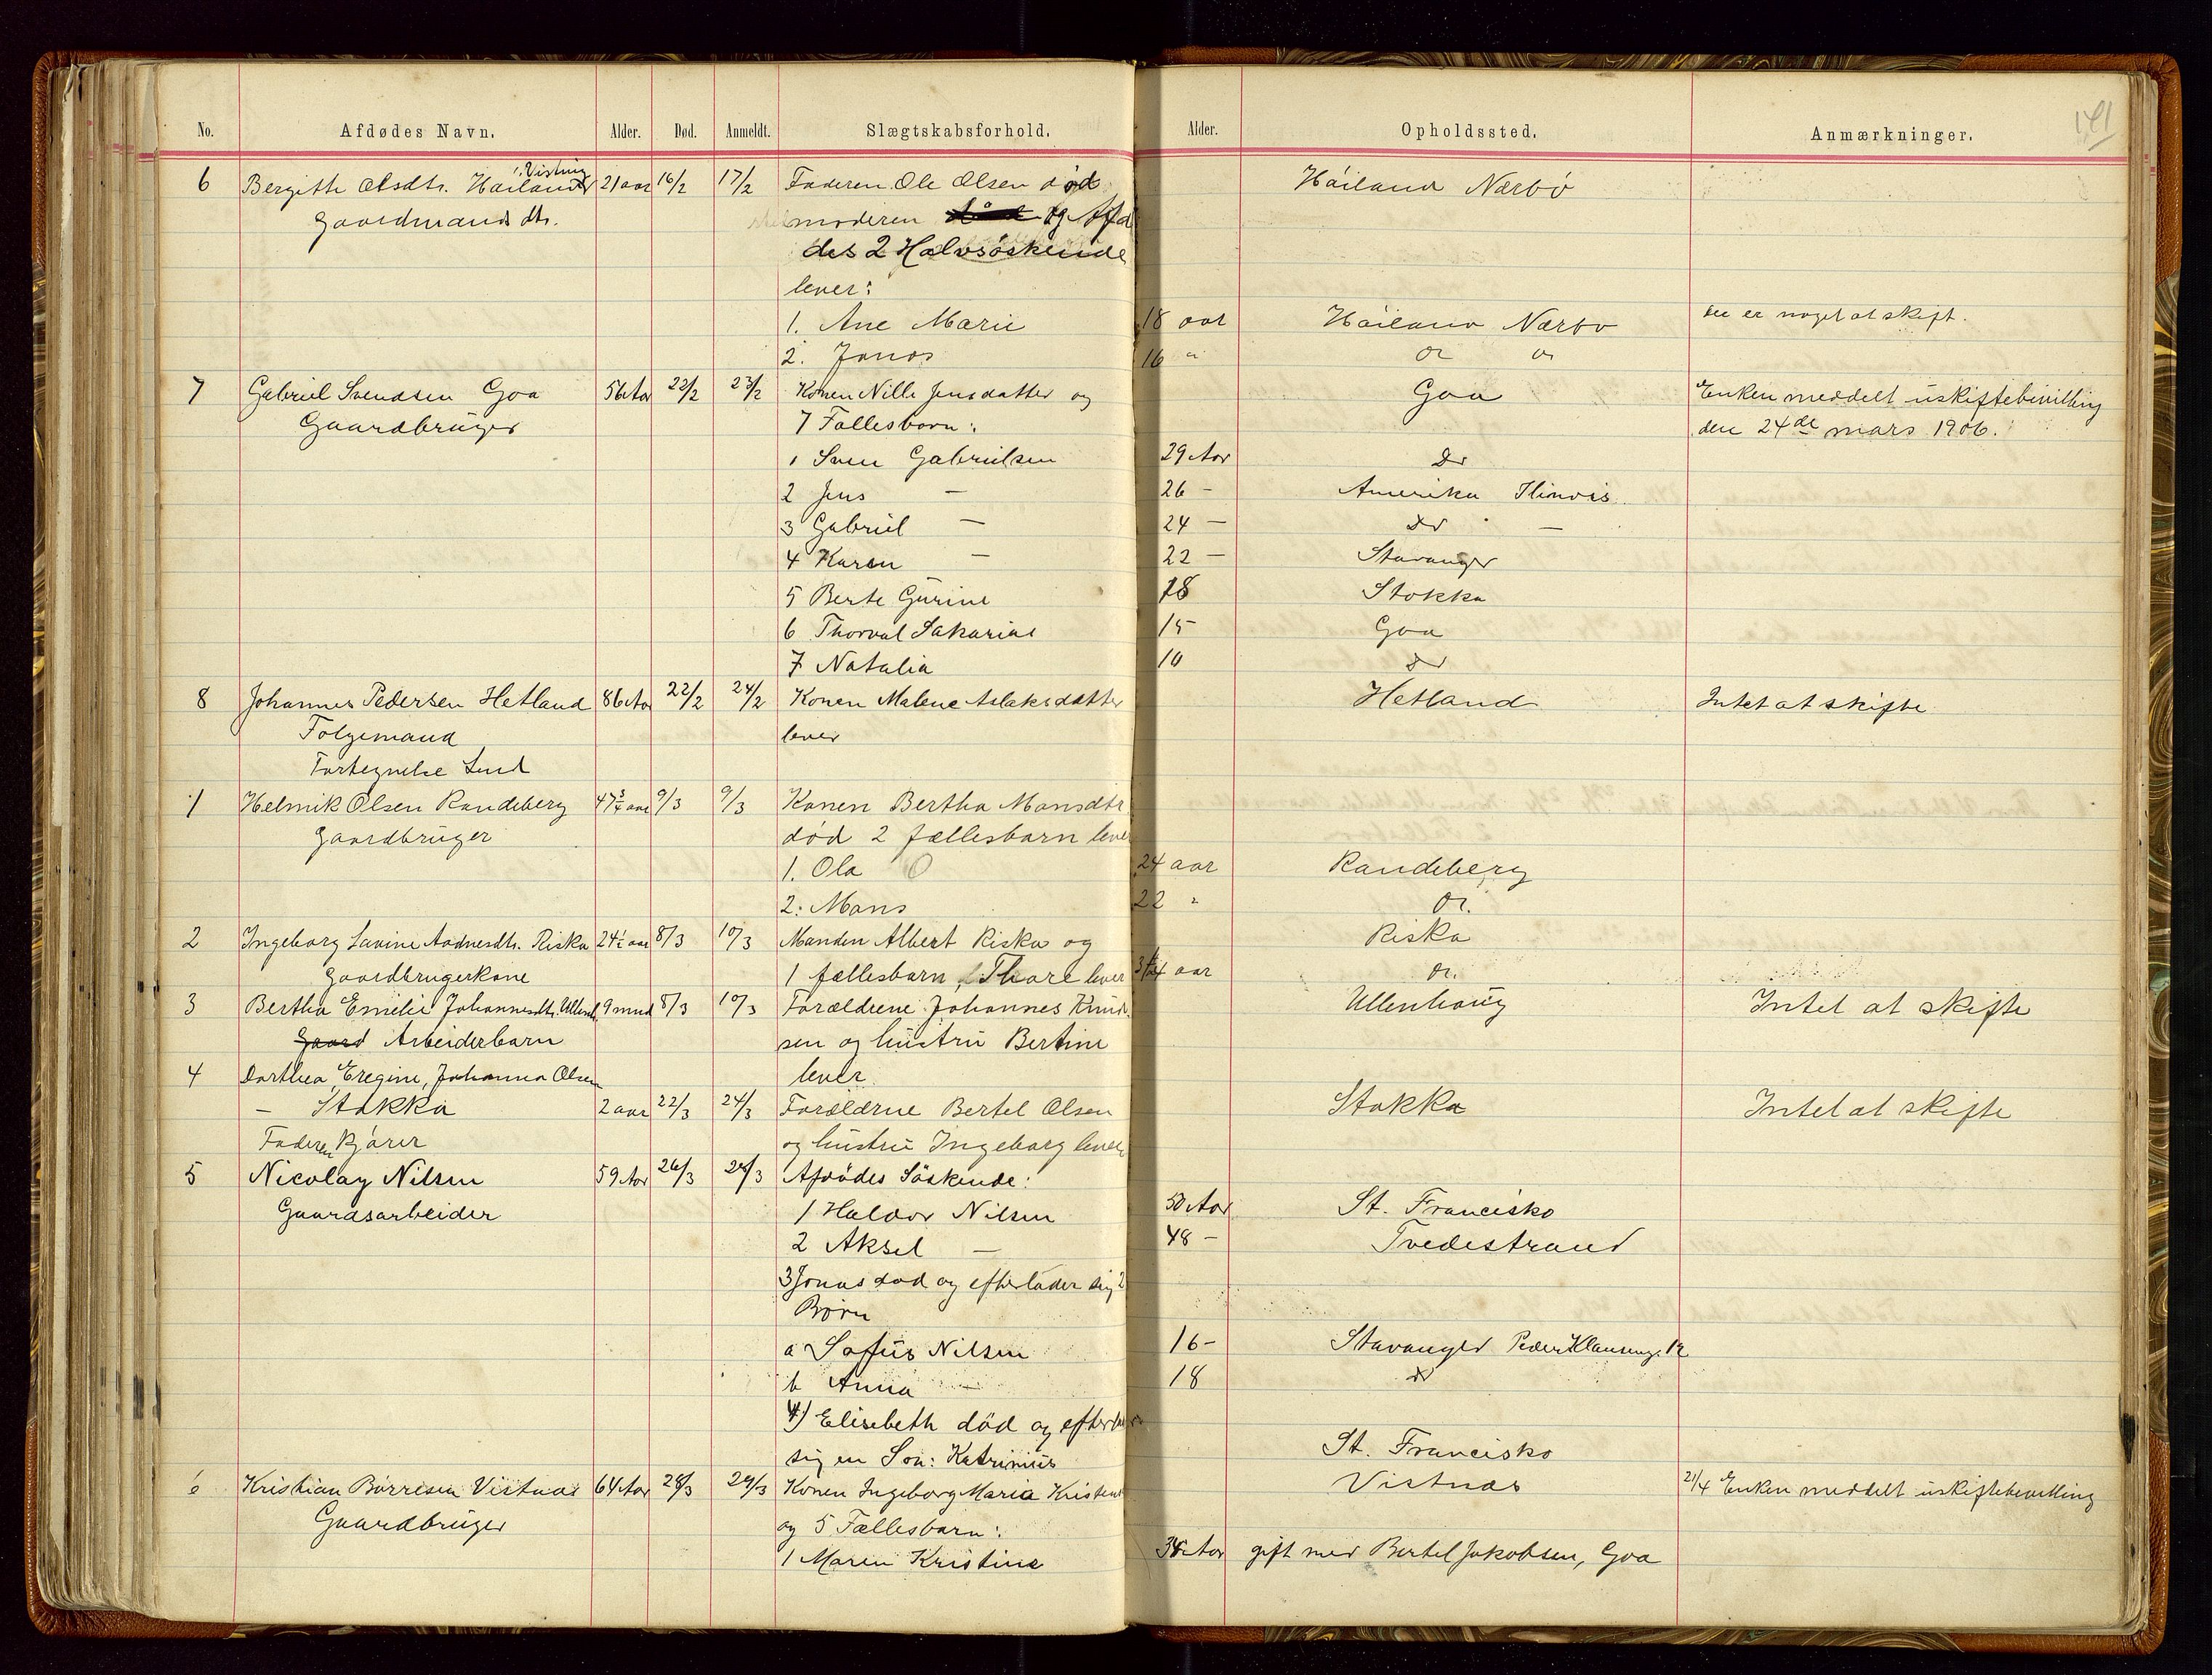 141
No. Afdødes Navn. Alder. Død. Anmeldt. Slægtskabsforhold. Alder. Opholdssted. Anmærkninger.
i Vistnes
6 Bergithe Olsdtr. Håiland 21 aar 16/2 17/2 Faderen Ole Olsen død Håiland Nærbø
Gaardmands dtr. moderen og Afdø
des 2 Halvsøskende
lever:
1. Ane Marie 18 aar Håiland Nærbø der er noget at skift.
2. Jonas 16 " do do
7 Gabriel Svendsen Goa 56 Aar 22/2 23/2 Konen Nille Jensdatter og Goa Enken meddelt uskiftebevilling
Gaardbruger 7 Fællesbørn: den 24de mars 1906.
1 Sven Gabrielsen 29 Aar do
2 Jens — 26 - Amerika Ilinois
3 Gabriel — 24 — do —
4 Karen — 22 — Stavanger
5 Berte Gurine 18 Stokka
6 Thorval Sakarias 15 Goa
7 Natalia 10 do
8 Johannes Pedersen Hetland 86 Aar 22/2 24/2 Konen Malene Aslaksdatter Hetland Intet at skifte
Følgemand lever
Fortegnelse Send
1 Helmik Olsen Randeberg 47 3/4 aar 9/3 9/3 Konen Bertha Mansdtr
Gaardbruger død 2 fællesbarn lever
1. Ola 24 aar Randeberg
2. Mans 22 " do.
2 Ingeborg Lavine Aadnesdtr. Riska 24 1/2 aar 8/3 10/3 Manden Albert Riska og Riska
gaardbrugerkone 1 fællesbarn, Thore lever 3/4 aar do.
3 Bertha Emilie Johannesdtr. Ullenh. 9 mnd 8/3 10/3 Forældrene Johannes Knud- Ullenhaug Intet at skifte
Gaard Arbeiderbarn sen og hustru Bertine
4 Dorthea Eregine, Johanna Olsen lever.
— Stokka 2 aar 22/3 24/3 Forældrne Bertel Olsen Stokka Intet at skifte
Faderen Kjører og hustru Ingeborg lever
5 Nicolay Nilsen 59 Aar 26/3 28/3 Afdødes Søskende:
Gaardsarbeider 1 Haldor Nilsen 50 Aar St. Francisko
2 Aksel — 48 - Tvedestrand
3 Jonas død og efterlader sig 2
Børn
a Sofus Nilsen 16 - Stavanger Peder Klausensg. 12
b Anna — 18 do
4) Elisebeth død og efterlader
sig en Søn: Katrinius St. Francisko
6 Kristian Børresen Vistnes 64 Aar 28/3 29/3 Konen Ingeborg Maria Kristens Vistnæs 21/4 Enken meddelt uskiftebevilling
Gaardbruger og 5 Fællesbarn:
1 Maren Kristine 38 Aar gift med Bertel Jakobsen, Goa